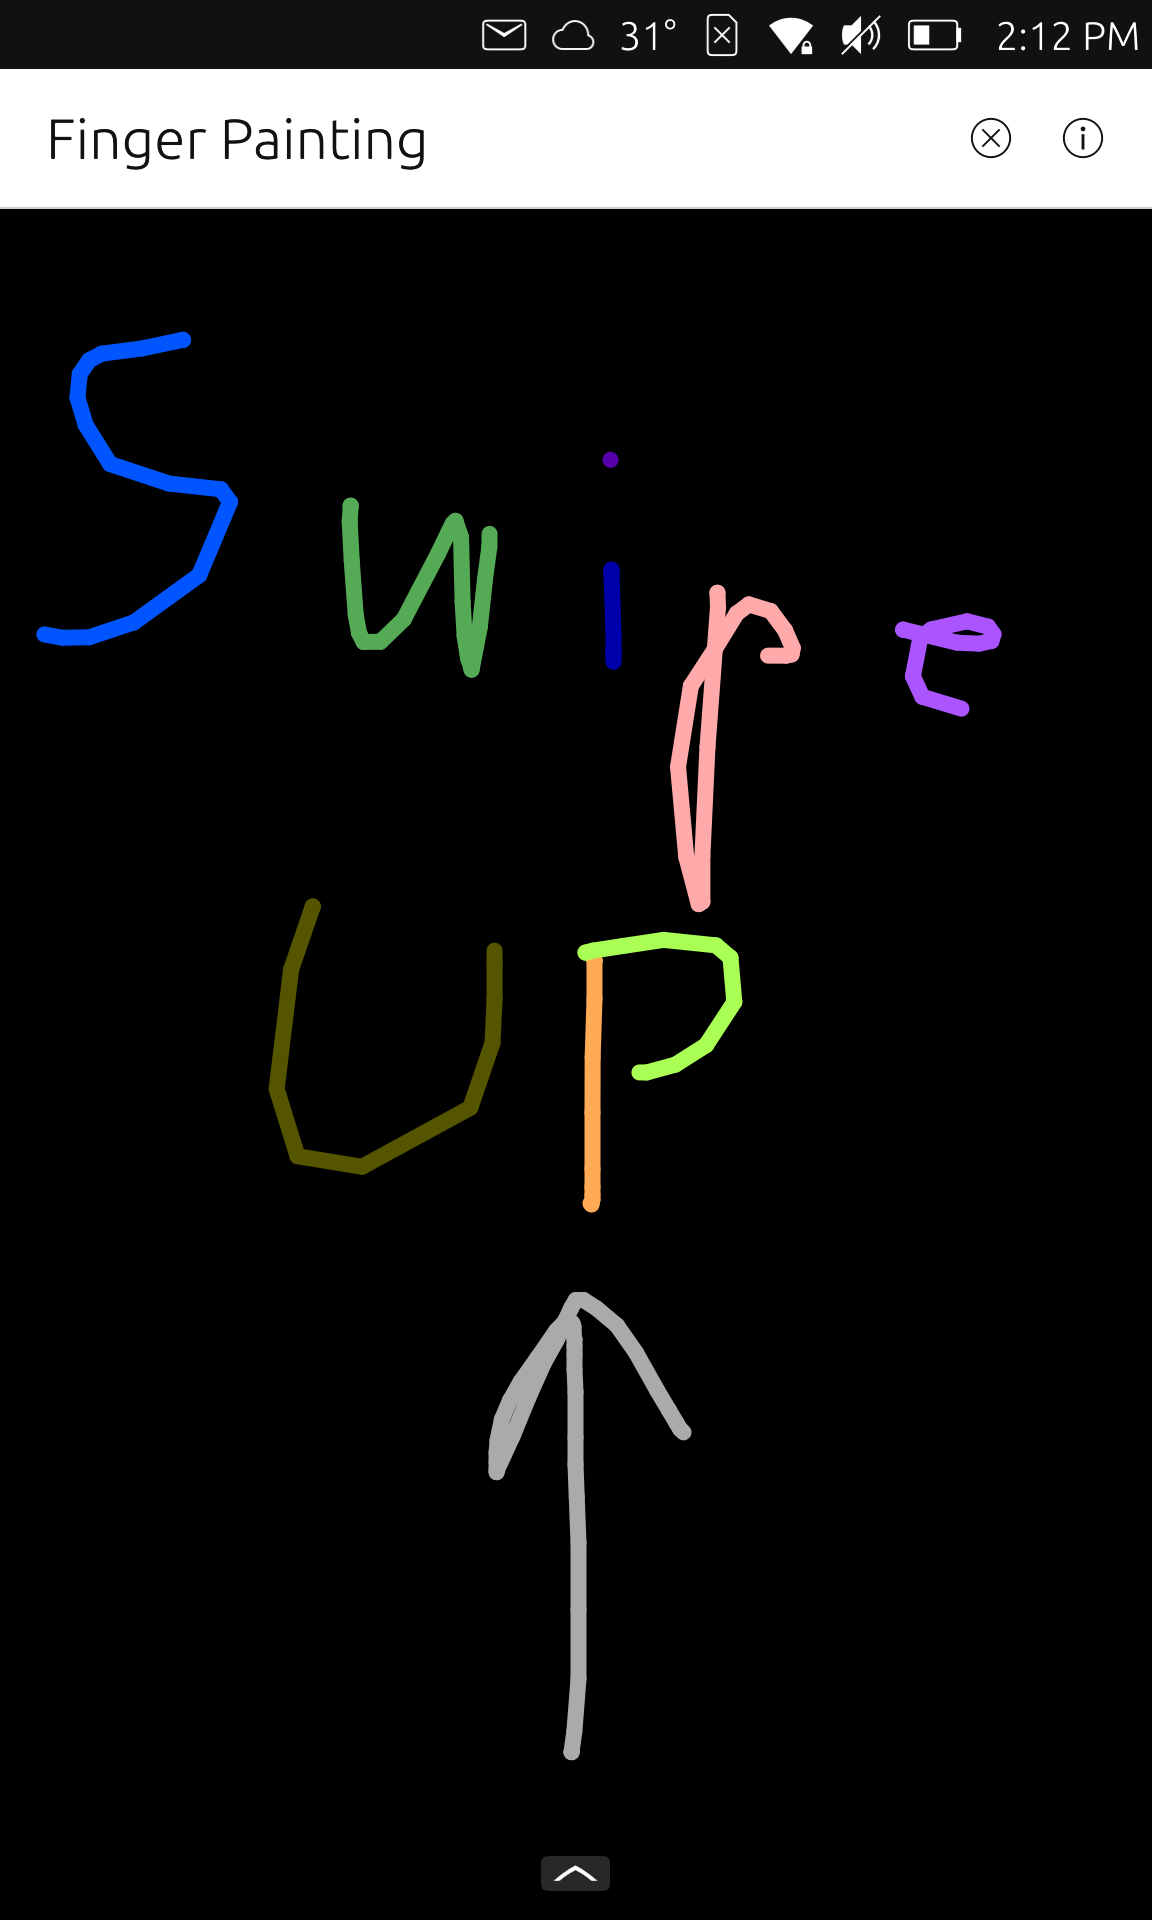 31° 2:12 PM
Finger Painting
Swipe
UP